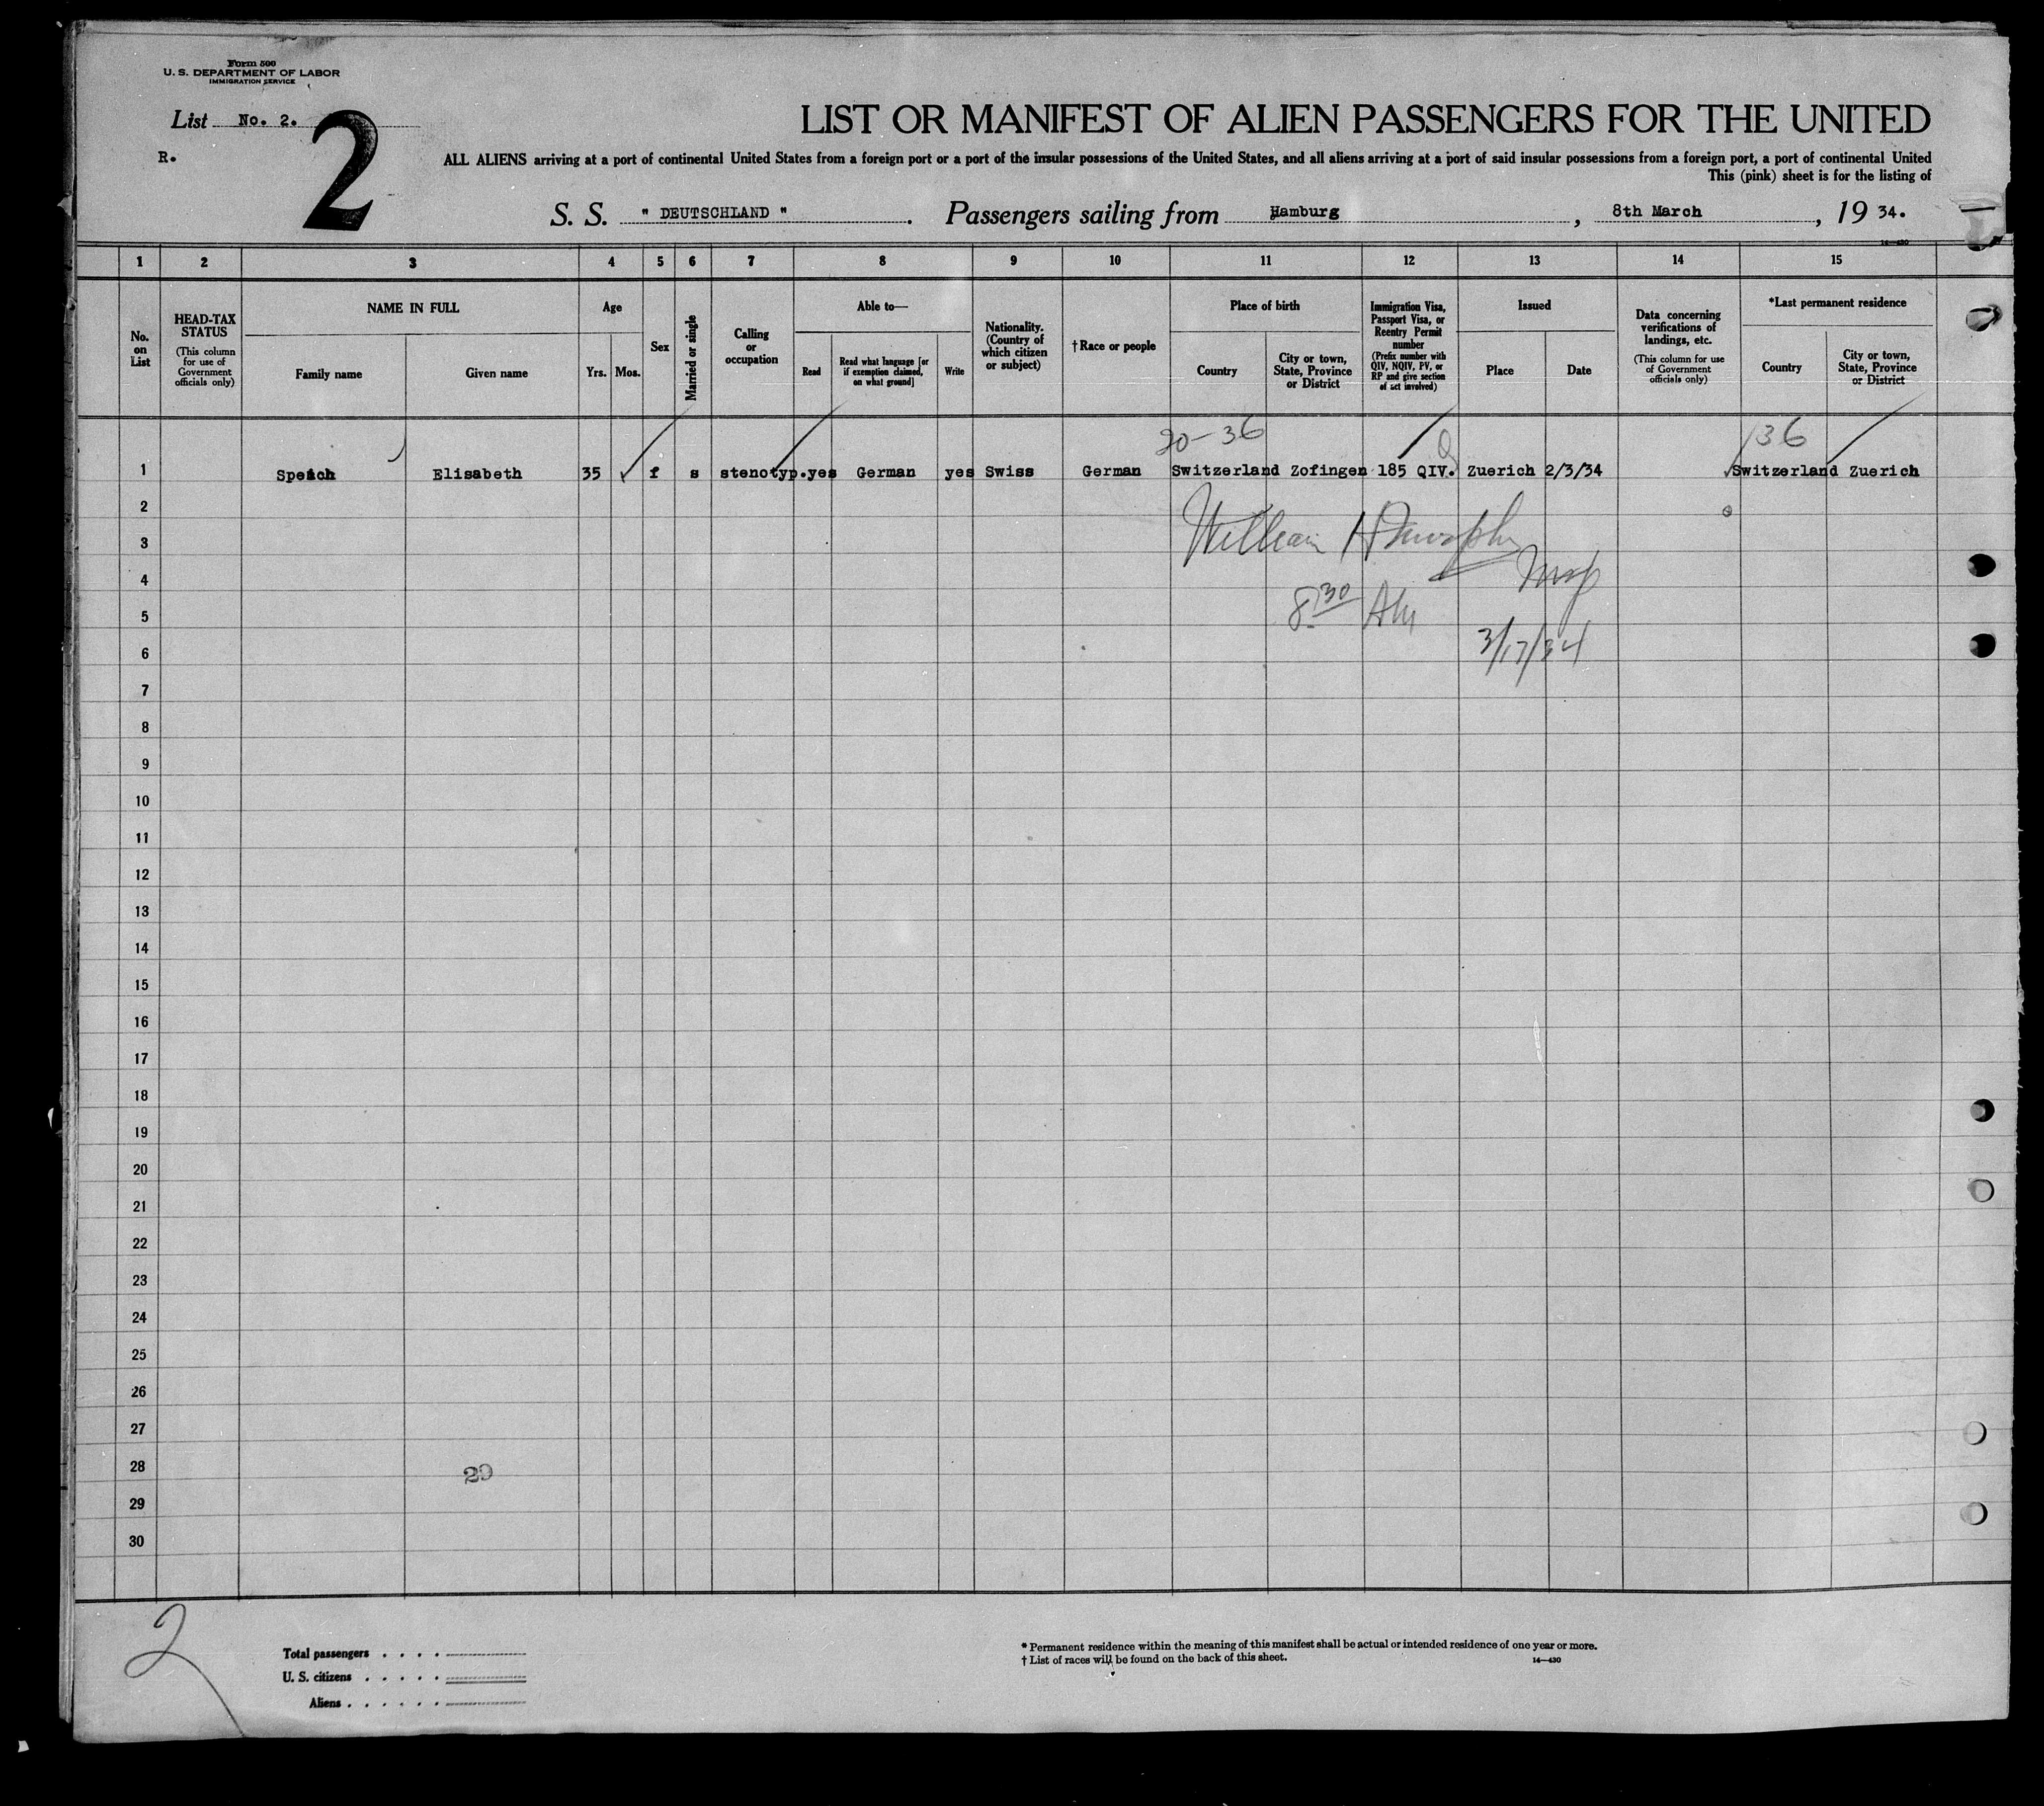 Form 500
U. S. DEPARTMENT OF LABOR
IMMIGRATION SERVICE
List No. 2.
R.
2
LIST OR MANIFEST OF ALIEN PASSENGERS FOR THE UNITED
ALL ALIENS arriving at a port of continental United States from a foreign port or a port of the insular possessions of the United States, and all aliens arriving at a port of said insular possessions from a foreign port, a port of continental United
This (pink) sheet is for the listing of
S. S. " DEUTSCHLAND ". Passengers sailing from Hamburg, 8th March, 19 34.
14—430
1 2 3 4 5 6 7 8 9 10 11 12 13 14 15
No. on List
HEAD-TAX STATUS
(This column for use of Government officials only)
NAME IN FULL
Family name
Given name
Age
Yrs. Mos.
Sex
Married or single
Calling or occupation
Able to—
Read
Read what language [or if exemption claimed, on what ground]
Write
Nationality. (Country of which citizen or subject)
†Race or people
Place of birth
Country
City or town, State, Province or District
Immigration Visa, Passport Visa, or Reentry Permit number
(Prefix number with QIV, NQIV, PV, or RP and give section of act involved)
Issued
Place
Date
Data concerning verifications of landings, etc.
(This column for use of Government officials only)
*Last permanent residence
Country
City or town, State, Province or District
20-36
Q
136
1 Elisabeth 35 f s stenotyp. yes German yes Swiss German Switzerland Zofingen 185 QIV. Zuerich 2/3/34 Switzerland Zuerich
2
William H Murphy
3
4
5
8 30 AM
6
3/17/34
7
8
9
10
11
12
13
14
15
16
17
18
19
20
21
22
23
24
25
26
27
28
29
30
2
Total passengers . . . .
U. S. citizens . . . . .
Aliens . . . . . .
* Permanent residence within the meaning of this manifest shall be actual or intended residence of one year or more.
† List of races will be found on the back of this sheet.
14—430